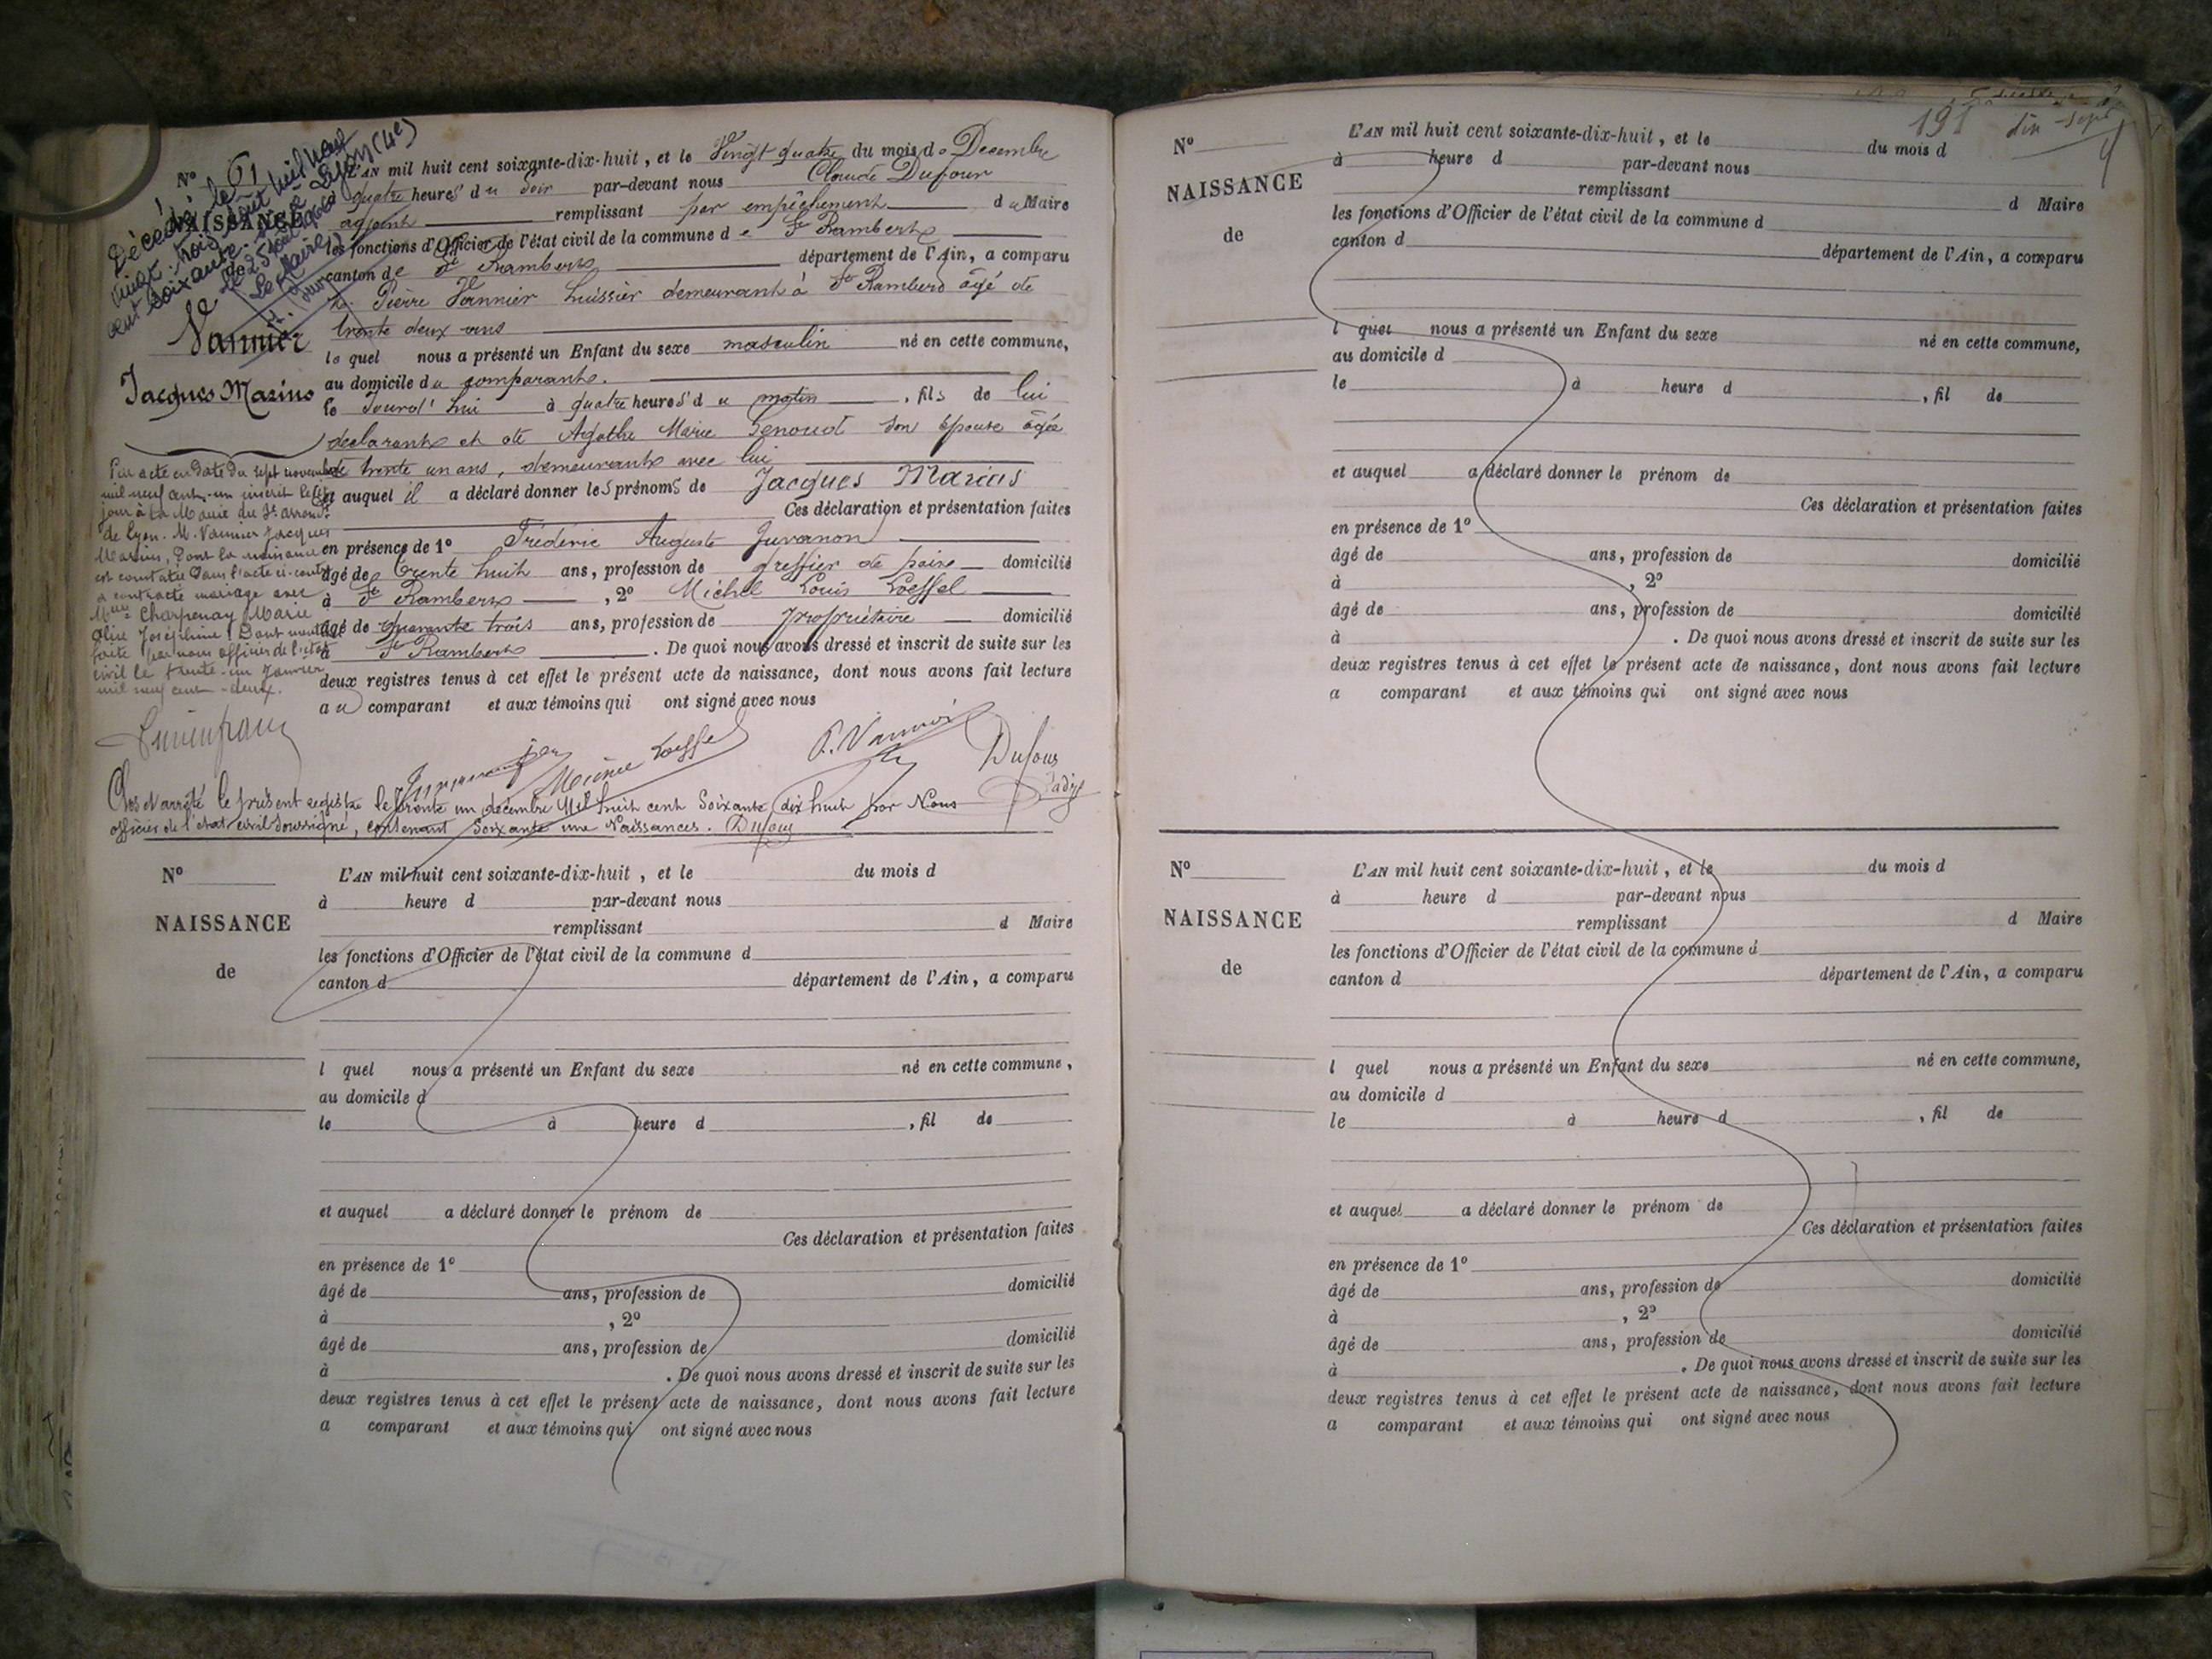 N° 61
NAISSANCE
Décédé le
vingt-trois août mil neuf
cent soixante Lyon (4e)
Le Maire
Vannier
Jacques Marius
L'AN mil huit cent soixante-dix-huit, et le Vingt quatre du mois de Decembre
à quatre heures du soir par-devant nous Claude Dufour
adjoint remplissant par empêchement du Maire
les fonctions d'Officier de l'état civil de la commune de St Rambert
canton de St Rambert département de l'Ain, a comparu
Pierre Vannier huissier demeurant à St Rambert âgé de
trente deux ans
le quel nous a présenté un Enfant du sexe masculin né en cette commune,
au domicile du comparant.
le Jourd'hui à quatre heures du matin, fils de lui
déclarant et de Agathe Marie Genoud son épouse âgée
de trente un ans, demeurant avec lui
et auquel il a déclaré donner les prénoms de Jacques Marius
Ces déclaration et présentation faites
en présence de 1° Frédéric Auguste Juvanon
âgé de trente huit ans, profession de greffier de paix domicilié
à St Rambert, 2° Michel Louis Loeffel
âgé de quarante trois ans, profession de propriétaire domicilié
à St Rambert. De quoi nous avons dressé et inscrit de suite sur les
deux registres tenus à cet effet le présent acte de naissance, dont nous avons fait lecture
au comparant et aux témoins qui ont signé avec nous
Par acte en date du sept novembre
mil neuf cent-un inscrit le même
jour à la Mairie du 3e arrondt
de Lyon. M. Vannier Jacques
Marius, dont la naissance
est constatée dans l'acte ci-contre
a contracté mariage avec
Melle Charpenay Marie
Alice Joséphine. Dont mention
faite par nous officier de l'état
civil le trente-un Janvier
mil neuf cent-deux.
Loeffel
P. Vannier
Dufour
adj
Clos et arrêté le présent registre le trente un décembre Mil huit cent Soixante dix huit par Nous
officier de l'état civil soussigné, contenant Soixante une Naissances. Dufour
N°
NAISSANCE
de
L'AN mil huit cent soixante-dix-huit, et le du mois d
à heure d par-devant nous
remplissant d Maire
les fonctions d'Officier de l'état civil de la commune d
canton d département de l'Ain, a comparu
l quel nous a présenté un Enfant du sexe né en cette commune,
au domicile d
le à heure d , fil de
et auquel a déclaré donner le prénom de
Ces déclaration et présentation faites
en présence de 1°
âgé de ans, profession de domicilié
à , 2°
âgé de ans, profession de domicilié
à . De quoi nous avons dressé et inscrit de suite sur les
deux registres tenus à cet effet le présent acte de naissance, dont nous avons fait lecture
a comparant et aux témoins qui ont signé avec nous
191
dix-sept
N°
NAISSANCE
de
L'AN mil huit cent soixante-dix-huit, et le du mois d
à heure d par-devant nous
remplissant d Maire
les fonctions d'Officier de l'état civil de la commune d
canton d département de l'Ain, a comparu
l quel nous a présenté un Enfant du sexe né en cette commune,
au domicile d
le à heure d , fil de
et auquel a déclaré donner le prénom de
Ces déclaration et présentation faites
en présence de 1°
âgé de ans, profession de domicilié
à , 2°
âgé de ans, profession de domicilié
à . De quoi nous avons dressé et inscrit de suite sur les
deux registres tenus à cet effet le présent acte de naissance, dont nous avons fait lecture
a comparant et aux témoins qui ont signé avec nous
N°
NAISSANCE
de
L'AN mil huit cent soixante-dix-huit, et le du mois d
à heure d par-devant nous
remplissant d Maire
les fonctions d'Officier de l'état civil de la commune d
canton d département de l'Ain, a comparu
l quel nous a présenté un Enfant du sexe né en cette commune,
au domicile d
le à heure d , fil de
et auquel a déclaré donner le prénom de
Ces déclaration et présentation faites
en présence de 1°
âgé de ans, profession de domicilié
à , 2°
âgé de ans, profession de domicilié
à . De quoi nous avons dressé et inscrit de suite sur les
deux registres tenus à cet effet le présent acte de naissance, dont nous avons fait lecture
a comparant et aux témoins qui ont signé avec nous